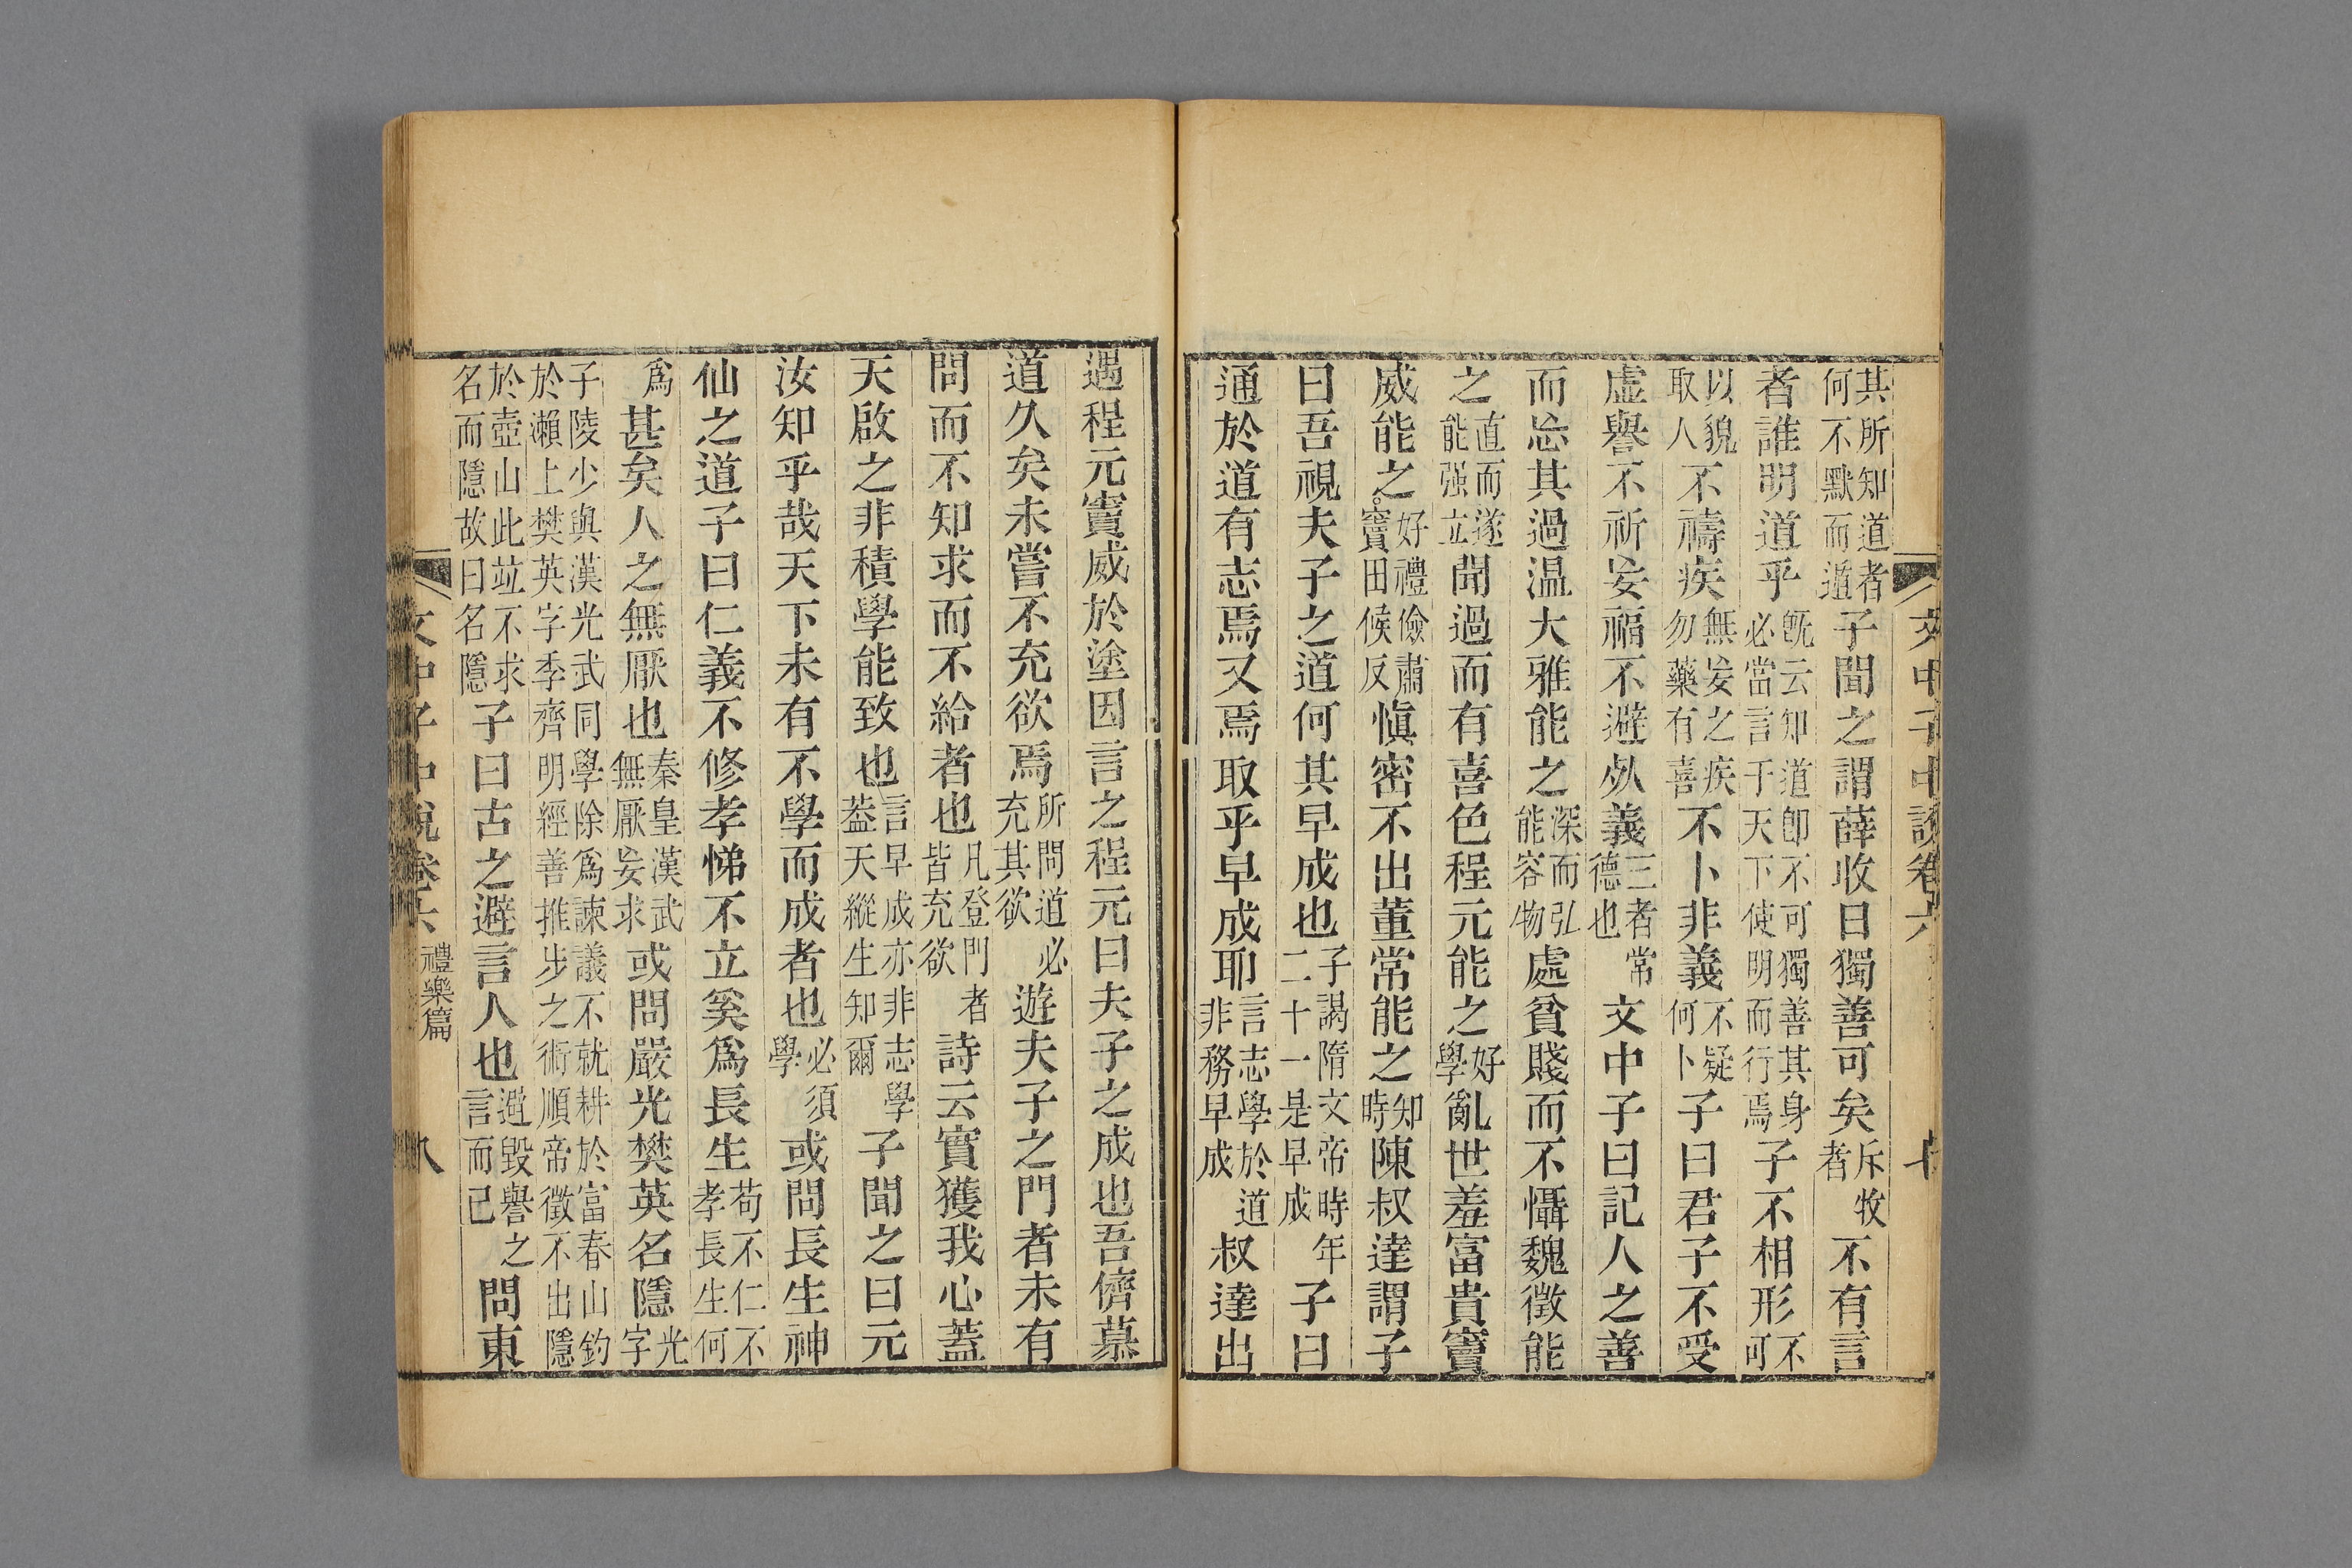 文中子中說卷六
其所知道者何不默而遁子聞之謂薛收曰獨善可矣斥牧者不有言
者誰明道乎旣云知道卽不可獨善其身必當言于天下使明而行焉子不相形不可
以貌取人不禱疾無妄之疾勿藥有喜不卜非義不疑何卜子曰君子不受
虛譽不祈妄福不避死義三者常德也文中子曰記人之善
而忘其過温大雅能之深而弘能容物處貧賤而不懾魏徵能
之直而遂能强立聞過而有喜色程元能之好學亂世羞富貴竇
威能之好禮儉肅竇田候反愼密不出董常能之知時陳叔達謂子
曰吾視夫子之道何其早成也子謁隋文帝時年二十一是早成子曰
通於道有志焉又焉取乎早成耶言志學於道非務早成叔達出
遇程元竇威於塗因言之程元曰夫子之成也吾儕慕
道久矣未嘗不充欲焉所問道必充其欲遊夫子之門者未有
問而不知求而不給者也凡登門者皆充欲詩云實獲我心蓋
天啟之非積學能致也言早成亦非志學葢天縱生知爾子聞之曰元
汝知乎哉天下未有不學而成者也必須學或問長生神
仙之道子曰仁義不修孝悌不立奚爲長生苟不仁不孝長生何
爲甚矣人之無厭也秦皇漢武無厭妄求或問嚴光樊英名隱光字
子陵少與漢光武同學除爲諫議不就耕於富春山釣於瀨上樊英字季齊明經善推步之術順帝徵不出隱
於壺山此竝不求名而隱故曰名隱子曰古之避言人也避毀譽之言而已問東
文中子中說卷六 禮樂篇 八